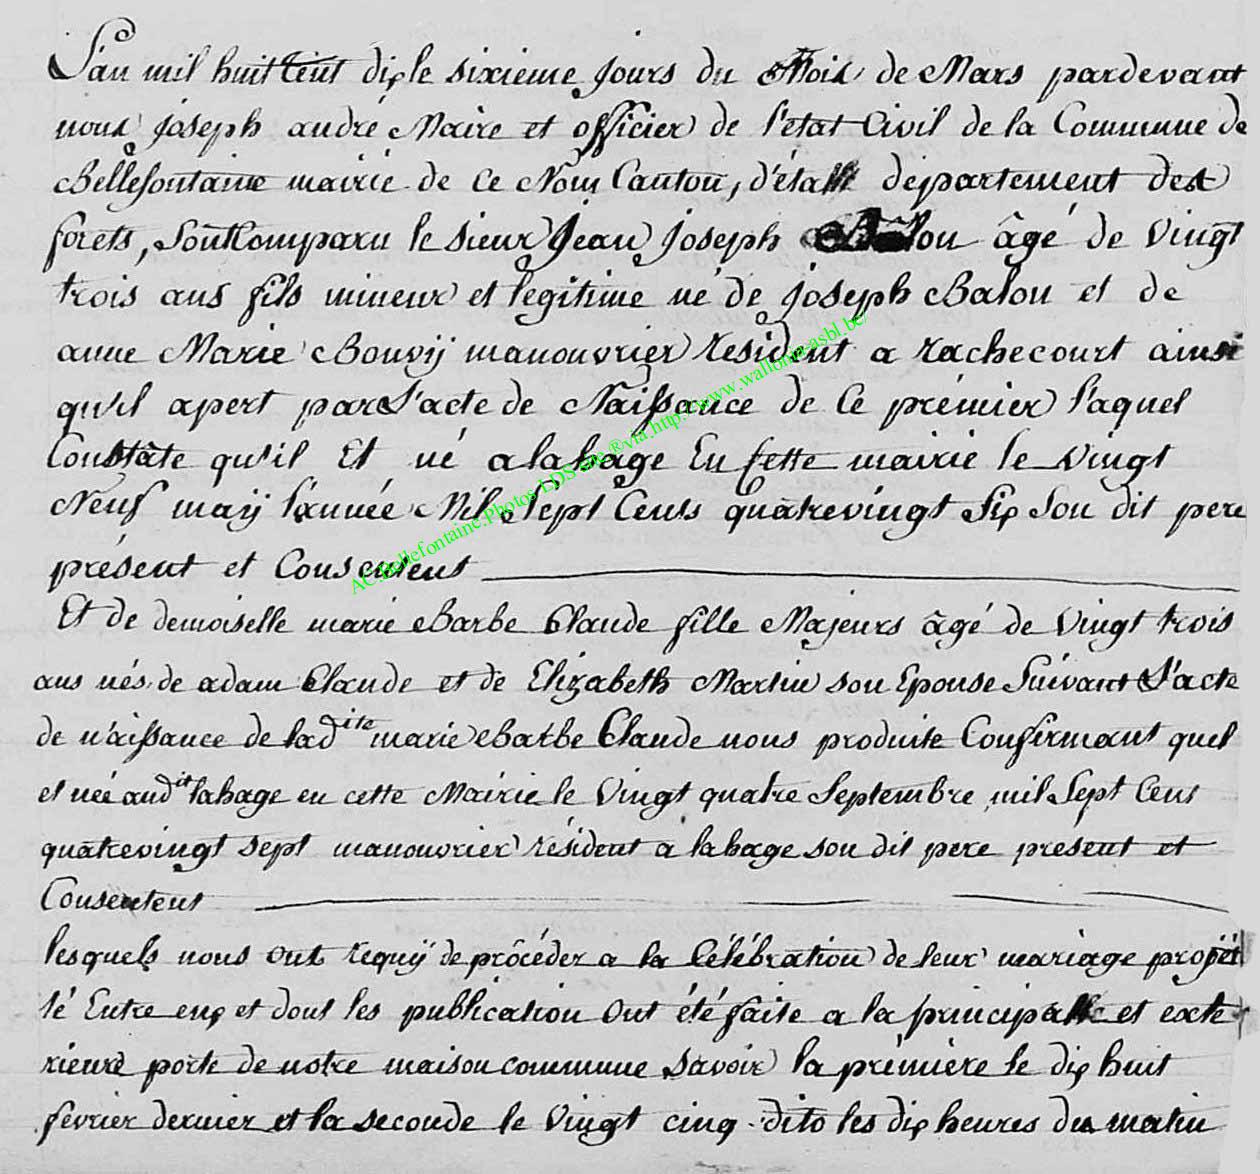 L'an mil huit Cent dix le sixieme jours du Mois de Mars pardevant
nous joseph andré Maire et officier de l'état Civil de la Commune de
Bellefontaine mairie de Ce Nom Canton, d'étalle departement des
forets, Sont Comparu le sieur Jean joseph Balon âgé de vingt
trois ans fils mineur et legitime né de joseph Balon et de
anne Marie Bouvÿ manouvrier résident a rachecourt ainsi
qu'il apert par L'acte de Naissance de Ce prémier laquel
Constâte qu'il Et né a labage En Cette mairie le vingt
Neuf maÿ l'année Mil Sept Cents quatrevingt Six Son dit pere
présent et Consentent
Et de demoiselle marie Barbe Claude fille Majeurs âgé de vingt trois
ans nés de adam Claude et de Elizabeth Martin son Epouse Suivant L'acte
de n'aissance de ladite marie Barbe Claude nous produite Confirmant quel
et née audit labage en cette Mairie le vingt quatre Septembre mil Sept Cens
quatrevingt sept manouvrier résident a labage son dit pere présent et
Consentent
lesquels nous ont requÿ de procéder a la Célébration de leur mariage projét
té Entre eux et dont les publication ont été faite a la principalle et exte
rieure porte de notre maison commune savoir la prémiere le dix huit
février dernier et la seconde le vingt cinq dito les dix heures du matin
AC Bellefontaine.Photos LDS site ®via.http://www.wallonia-asbl.be/